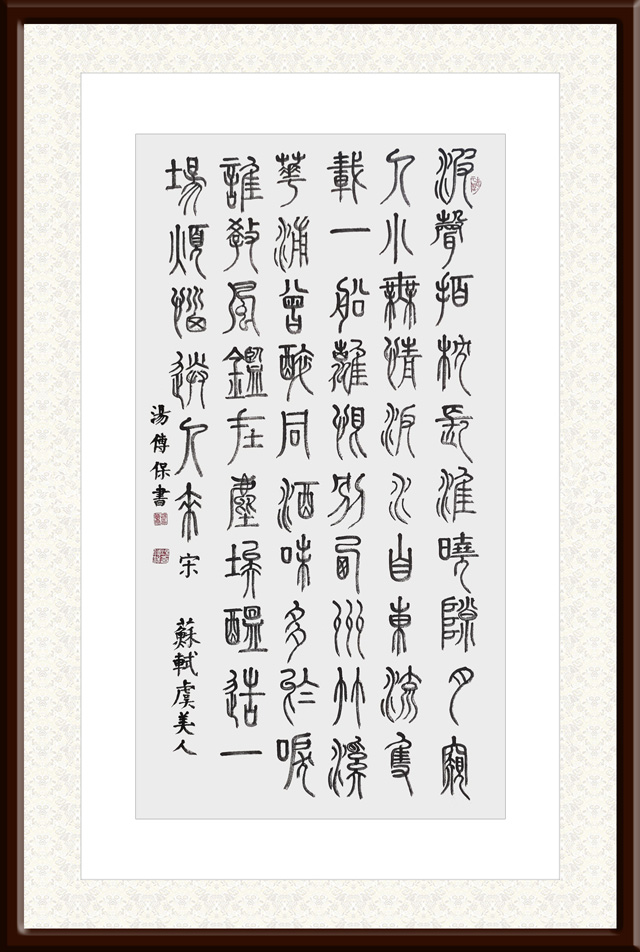 波聲拍枕長淮曉隙月窺
人小無情汳水自東流隻
載一船離恨別西州竹溪
華浦曾醉同酒味多於淚
誰教風鑑在塵埃醞造一
場煩惱送人來 宋
蘇軾虞美人
湯傅保書